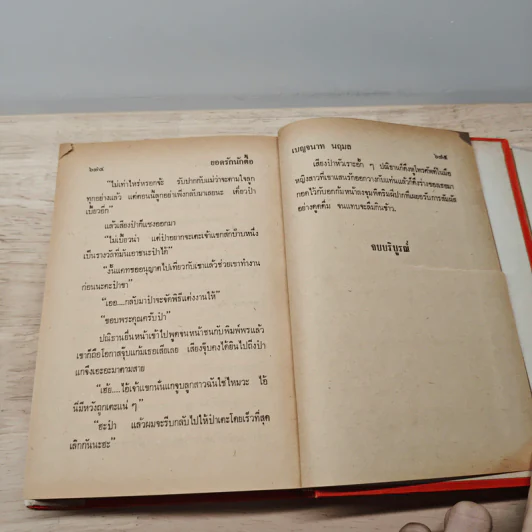 ๖๗๔ ยอดรักนักตื๊อ
"ไม่เท่าไหร่หรอกจ้ะ รับปากกับแม่ว่าจะตามใจลูก
ทุกอย่างแล้ว แต่ตอนนี้ลูกอย่าเพิ่งกลับมาเลยนะ เดี๋ยวป๋า
เบี้ยวอีก"
แล้วเสียงป๋าก็แซงออกมา
"ไม่เบี้ยวน่า แต่ป๋าอยากจะเตะเจ้าแขกสักป้าบหนึ่ง
เป็นรางวัลที่มันเอาชนะป๋าได้"
"งั้นแคทขออนุญาตไปเที่ยวกับเขาแล้วช่วยเขาทำงาน
ก่อนนะคะป๋าขา"
"เออ....กลับมาป๋าจะจัดพิธีแต่งงานให้"
"ขอบพระคุณครับป๋า"
ปณิธานยื่นหน้าเข้าไปพูดจนหน้าชนกับพิมพ์พรแล้ว
เขาก็ถือโอกาสจุ๊บแก้มเธอเสียเลย เสียงจุ๊บคงได้ยินไปถึงป๋า
แกจึงเอะอะมาตามสาย
"เฮ้ย....ไอ้เจ้าแขกนั่นแกจูบลูกสาวฉันใช่ไหมวะ ไอ้
นี่มีหวังถูกเตะแน่ ๆ"
"ฮะป๋า แล้วผมจะรีบกลับไปให้ป๋าเตะโดยเร็วที่สุด
เลิกกันนะฮะ"
เบญจนาท นฤมล ๖๗๕
เสียงป๋าหัวเราะฮ้า ๆ ปณิธานก็ดึงหูโทรศัพท์ในมือ
หญิงสาวที่เขาแสนรักออกวางกับแท่นแล้วก็ดึงร่างของเธอมา
กอดไว้กับอกก้มหน้าลงจุมพิตริมฝีปากที่เผยอรับการสัมผัส
อย่างดูดดื่ม จนแทบจะลืมกินข้าว.
จบบริบูรณ์